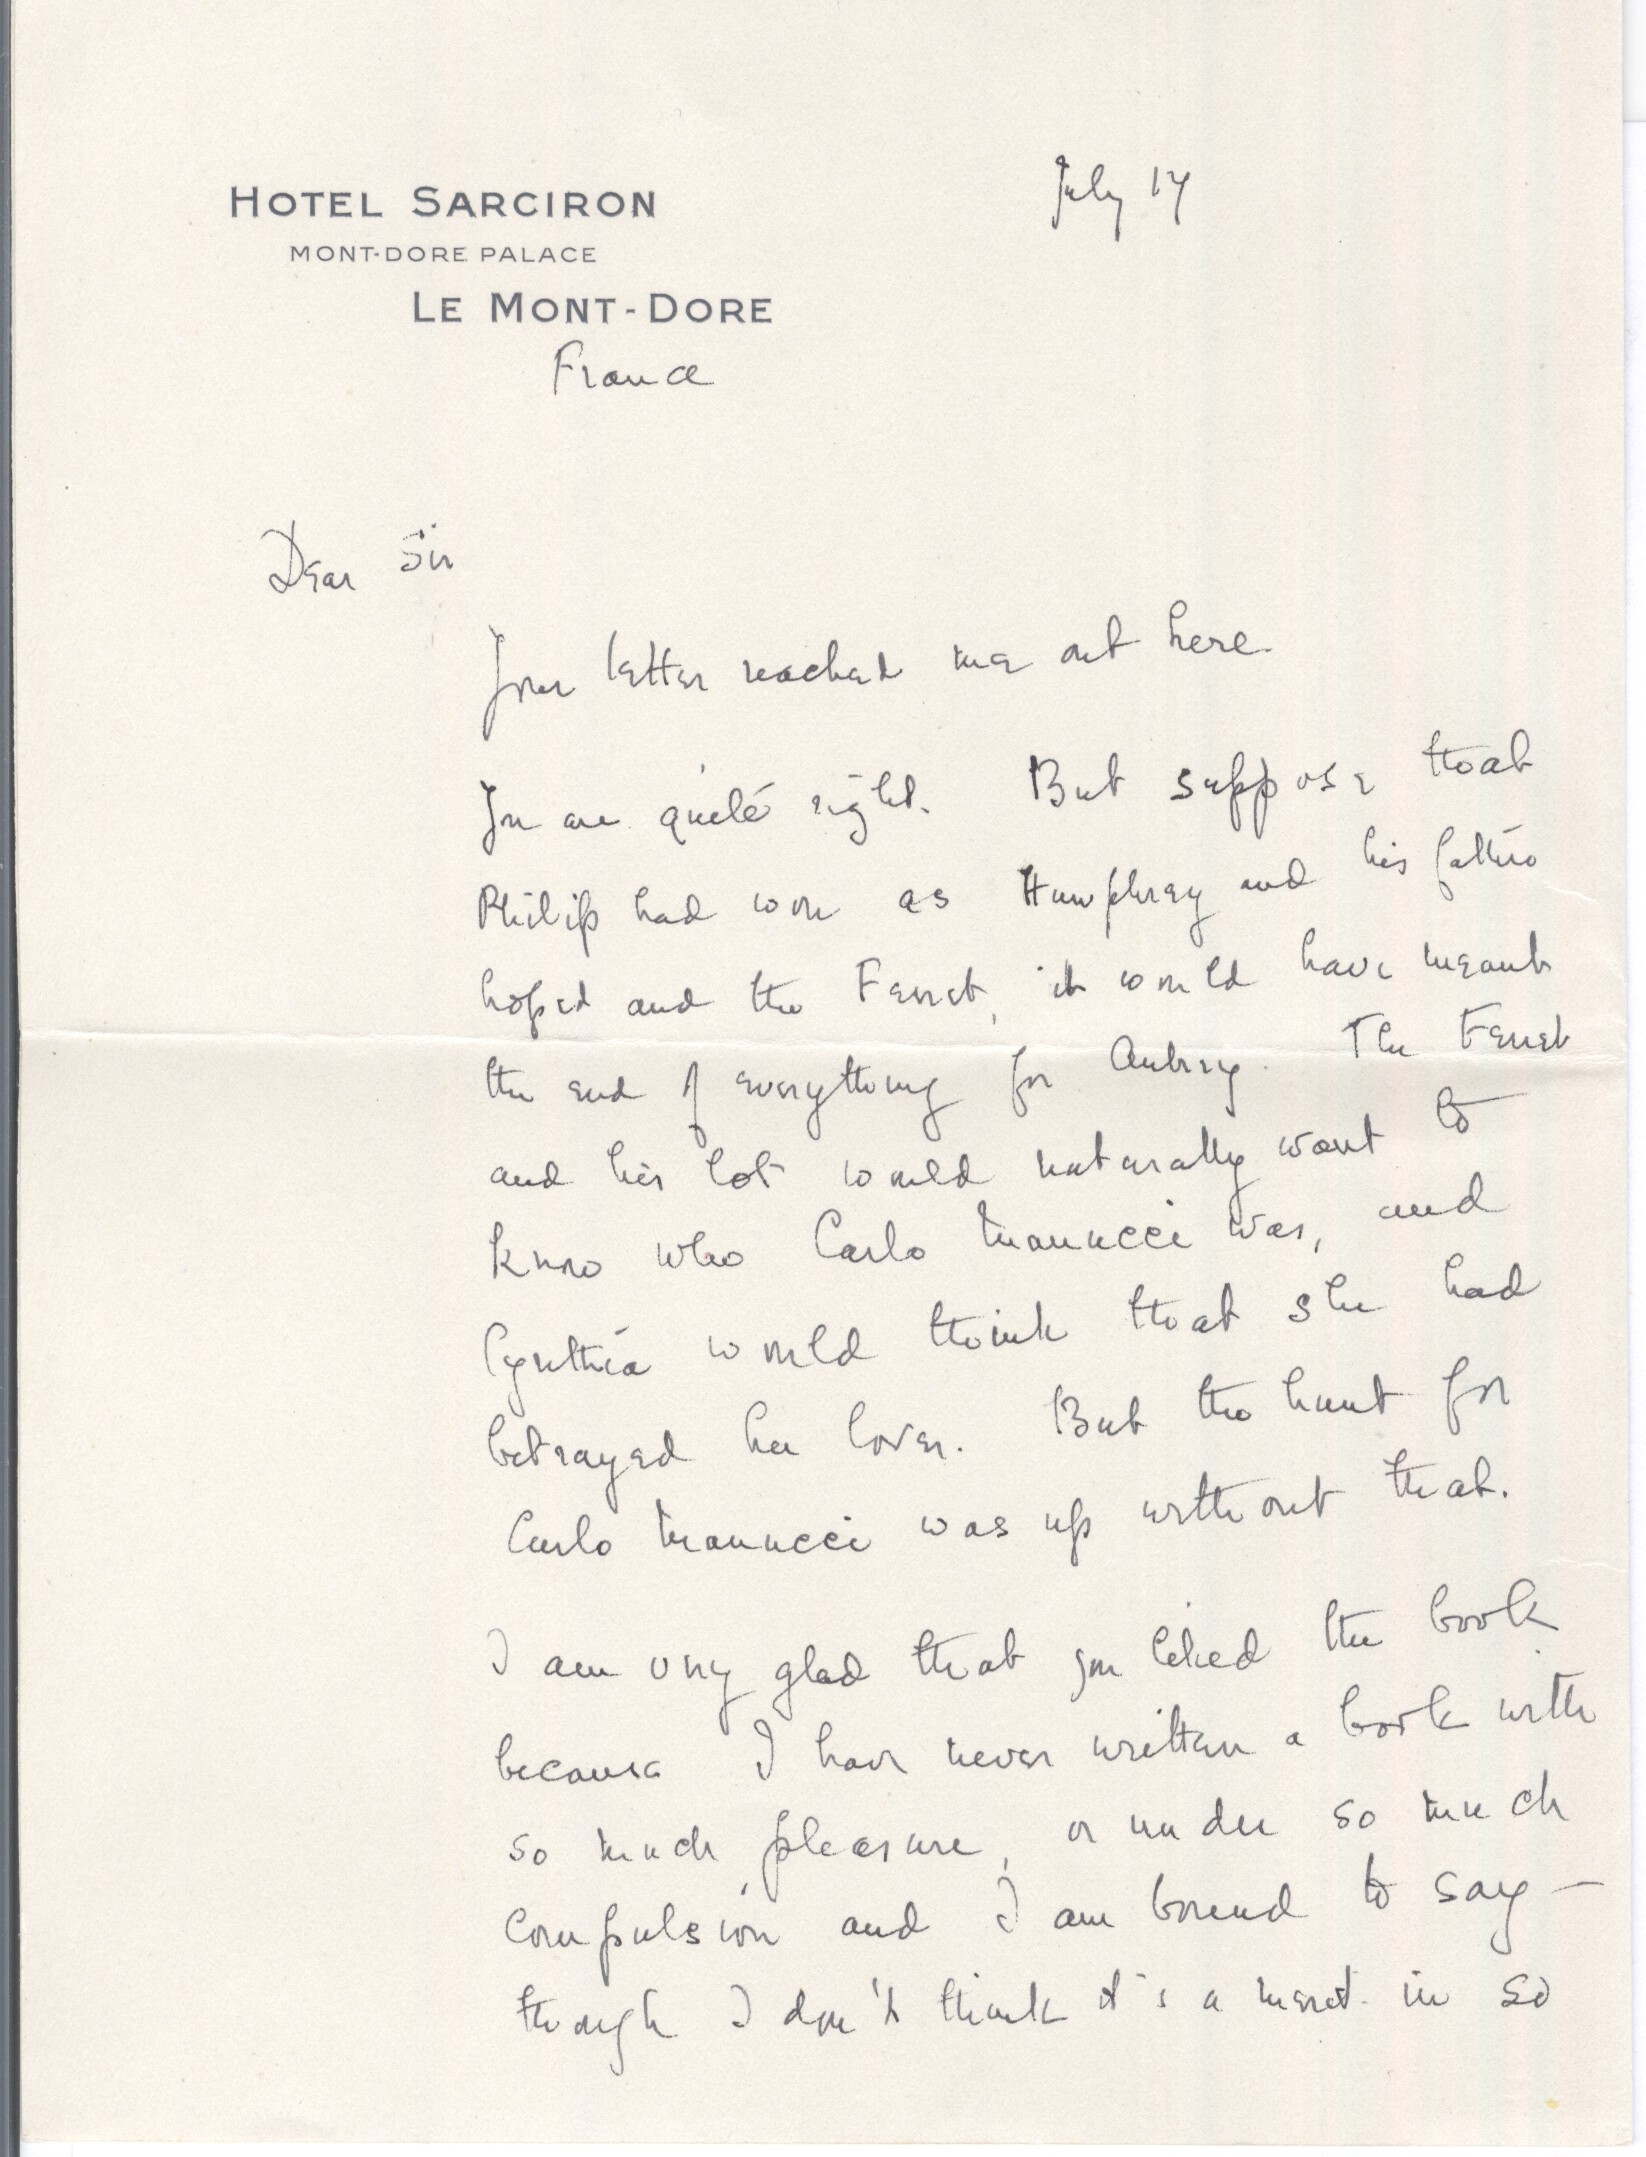 HOTEL SARCIRON
MONT-DORE PALACE
LE MONT-DORE
France
July 17
Dear Sir
Your letter reached me out here.
You are quite right. But suppose that
Philip had won as Humphrey and his father
hoped and the Ferret, it would have meant
the end of everything for Aubrey. The Ferret
and his lot would naturally want to
know who Carlo Manucci was, and
Cynthia would think that she had
betrayed her lover. But the hunt for
Carlo Manucci was up without that.
I am very glad that you liked the book
because I have never written a book with
so much pleasure, or under so much
compulsion and I am bound to say –
though I don't think it's a merit in so